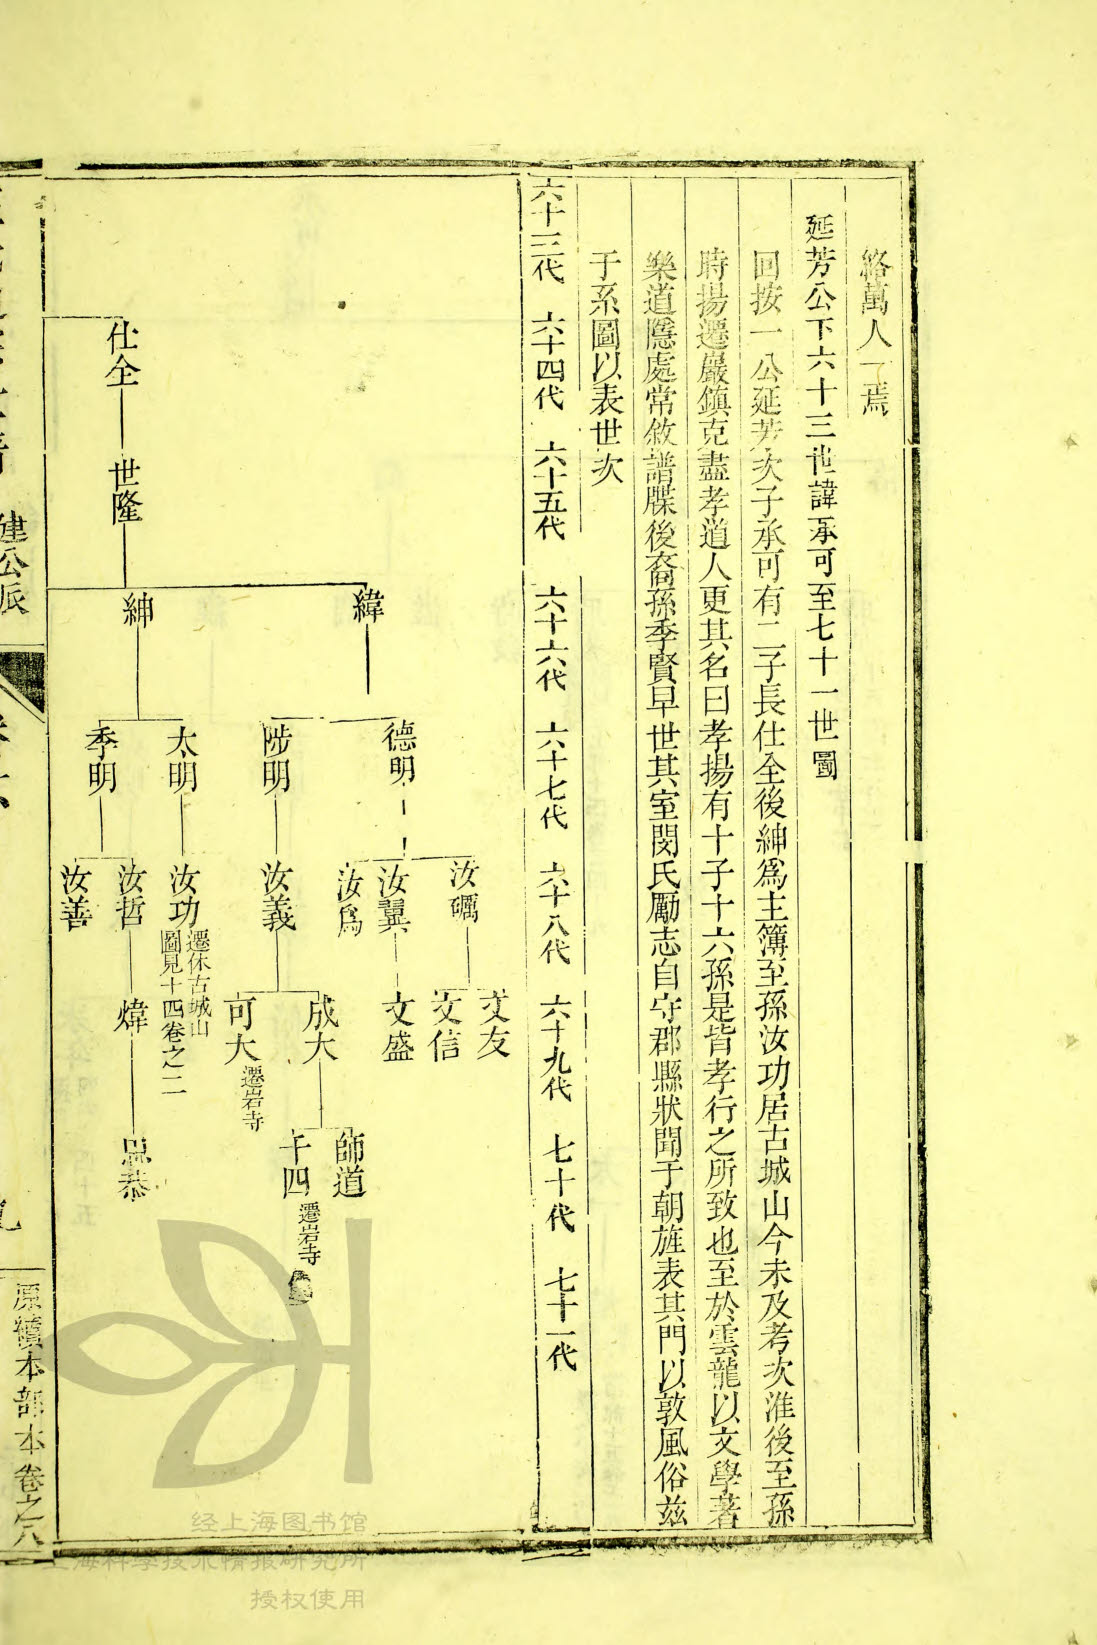 絡萬人一焉
延芳公下六十三世諱承可至七十一世圖
回按一公延芳次子承可有二子長仕全後紳爲主簿至孫汝功居古城山今未及考次淮後至孫
時揚遷巖鎮克盡孝道人更其名曰孝揚有十子十六孫是皆孝行之所致也至於雲龍以文學著
樂道隱處常敘譜牒後裔孫季賢早世其室閔氏勵志自守郡縣狀聞于朝旌表其門以敦風俗茲
于系圖以表世次
六十三代 六十四代 六十五代 六十六代 六十七代 六十八代 六十九代 七十代 七十一代
文友
汝礪 文信
德明 汝翼 文盛
汝爲
緯
師道
陟明 汝義 成大 千四 遷岩寺
可大 遷岩寺
太明 汝功 遷休古城山
圖見十四卷之二
仕全 世隆 紳
汝哲 煒 思恭
季明 汝善
建公派
原續本部本卷之六
经上海图书馆
上海科学技术情报研究所
授权使用